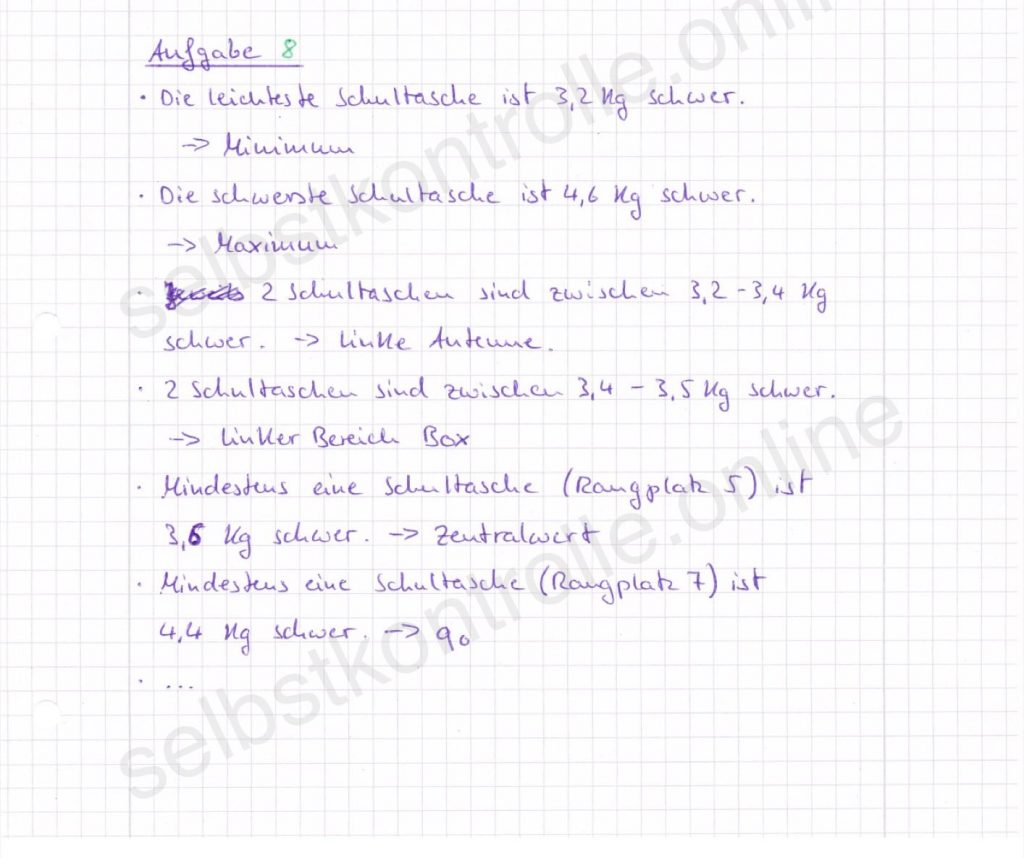 Aufgabe 8
· Die leichteste Schultasche ist 3,2 Kg schwer.
-> Minimum
· Die schwerste Schultasche ist 4,6 Kg schwer.
-> Maximum
· 2 Schultaschen sind zwischen 3,2 - 3,4 Kg
schwer. -> linke Antenne.
· 2 Schultaschen sind zwischen 3,4 - 3,5 Kg schwer.
-> linker Bereich Box
· Mindestens eine Schultasche (Rangplatz 5) ist
3,6 Kg schwer. -> Zentralwert
· Mindestens eine Schultasche (Rangplatz 7) ist
4,4 Kg schwer. -> qo
· ...
selbstkontrolle.online
selbstkontrolle.online